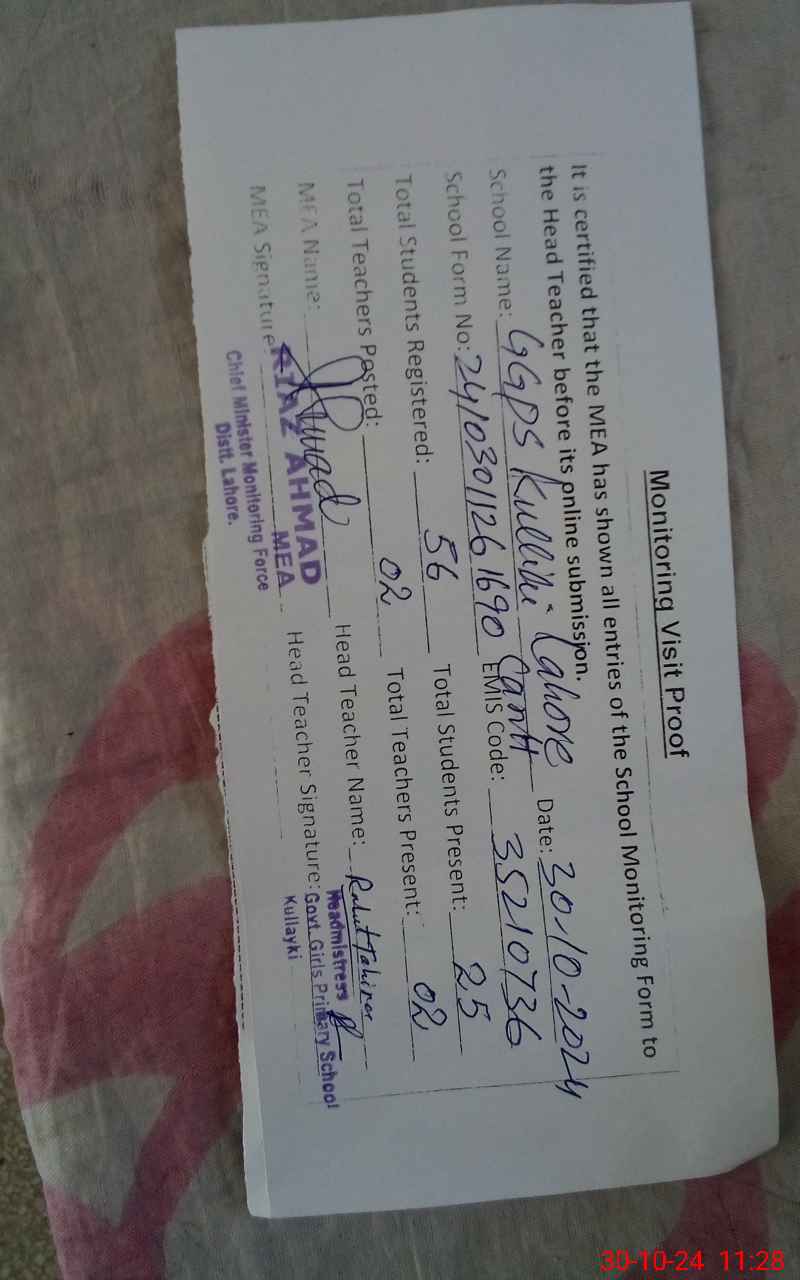 Monitoring Visit Proof
It is certified that the MEA has shown all entries of the School Monitoring Form to
the Head Teacher before its online submission.
School Name: GGPS Kulliki Lahore Cantt Date: 30-10-2024
School Form No: 2410301126 1690 EMIS Code: 35210736
Total Students Registered: 56 Total Students Present: 25
Total Teachers Posted: 02 Total Teachers Present: 02
MEA Name: Head Teacher Name:
MEA Signature: Head Teacher Signature:
RIAZ AHMAD
MEA
Chief Minister Monitoring Force
Distt. Lahore.
Headmistress
Govt. Girls Primary School
Kullayki
30-10-24 11:28